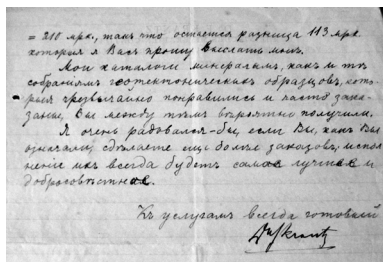 = 210 мрк., такъ что остается разница 113 мрк.
которыя я Васъ прошу выслать мнѣ.
Мои каталоги минераламъ, какъ и
собраніямъ геотектоническихъ образцовъ, кото-
рыя чрезвычайно понравились и часто зака-
заны, Вы между тѣмъ вѣроятно получили.
Я очень радовался-бы, если Вы, какъ Вы
означали, сдѣлаете еще болѣе заказовъ; испол
неніе ихъ всегда будетъ самое лучшее и
добросовѣстное.
Къ услугамъ всегда готовый
Krantz